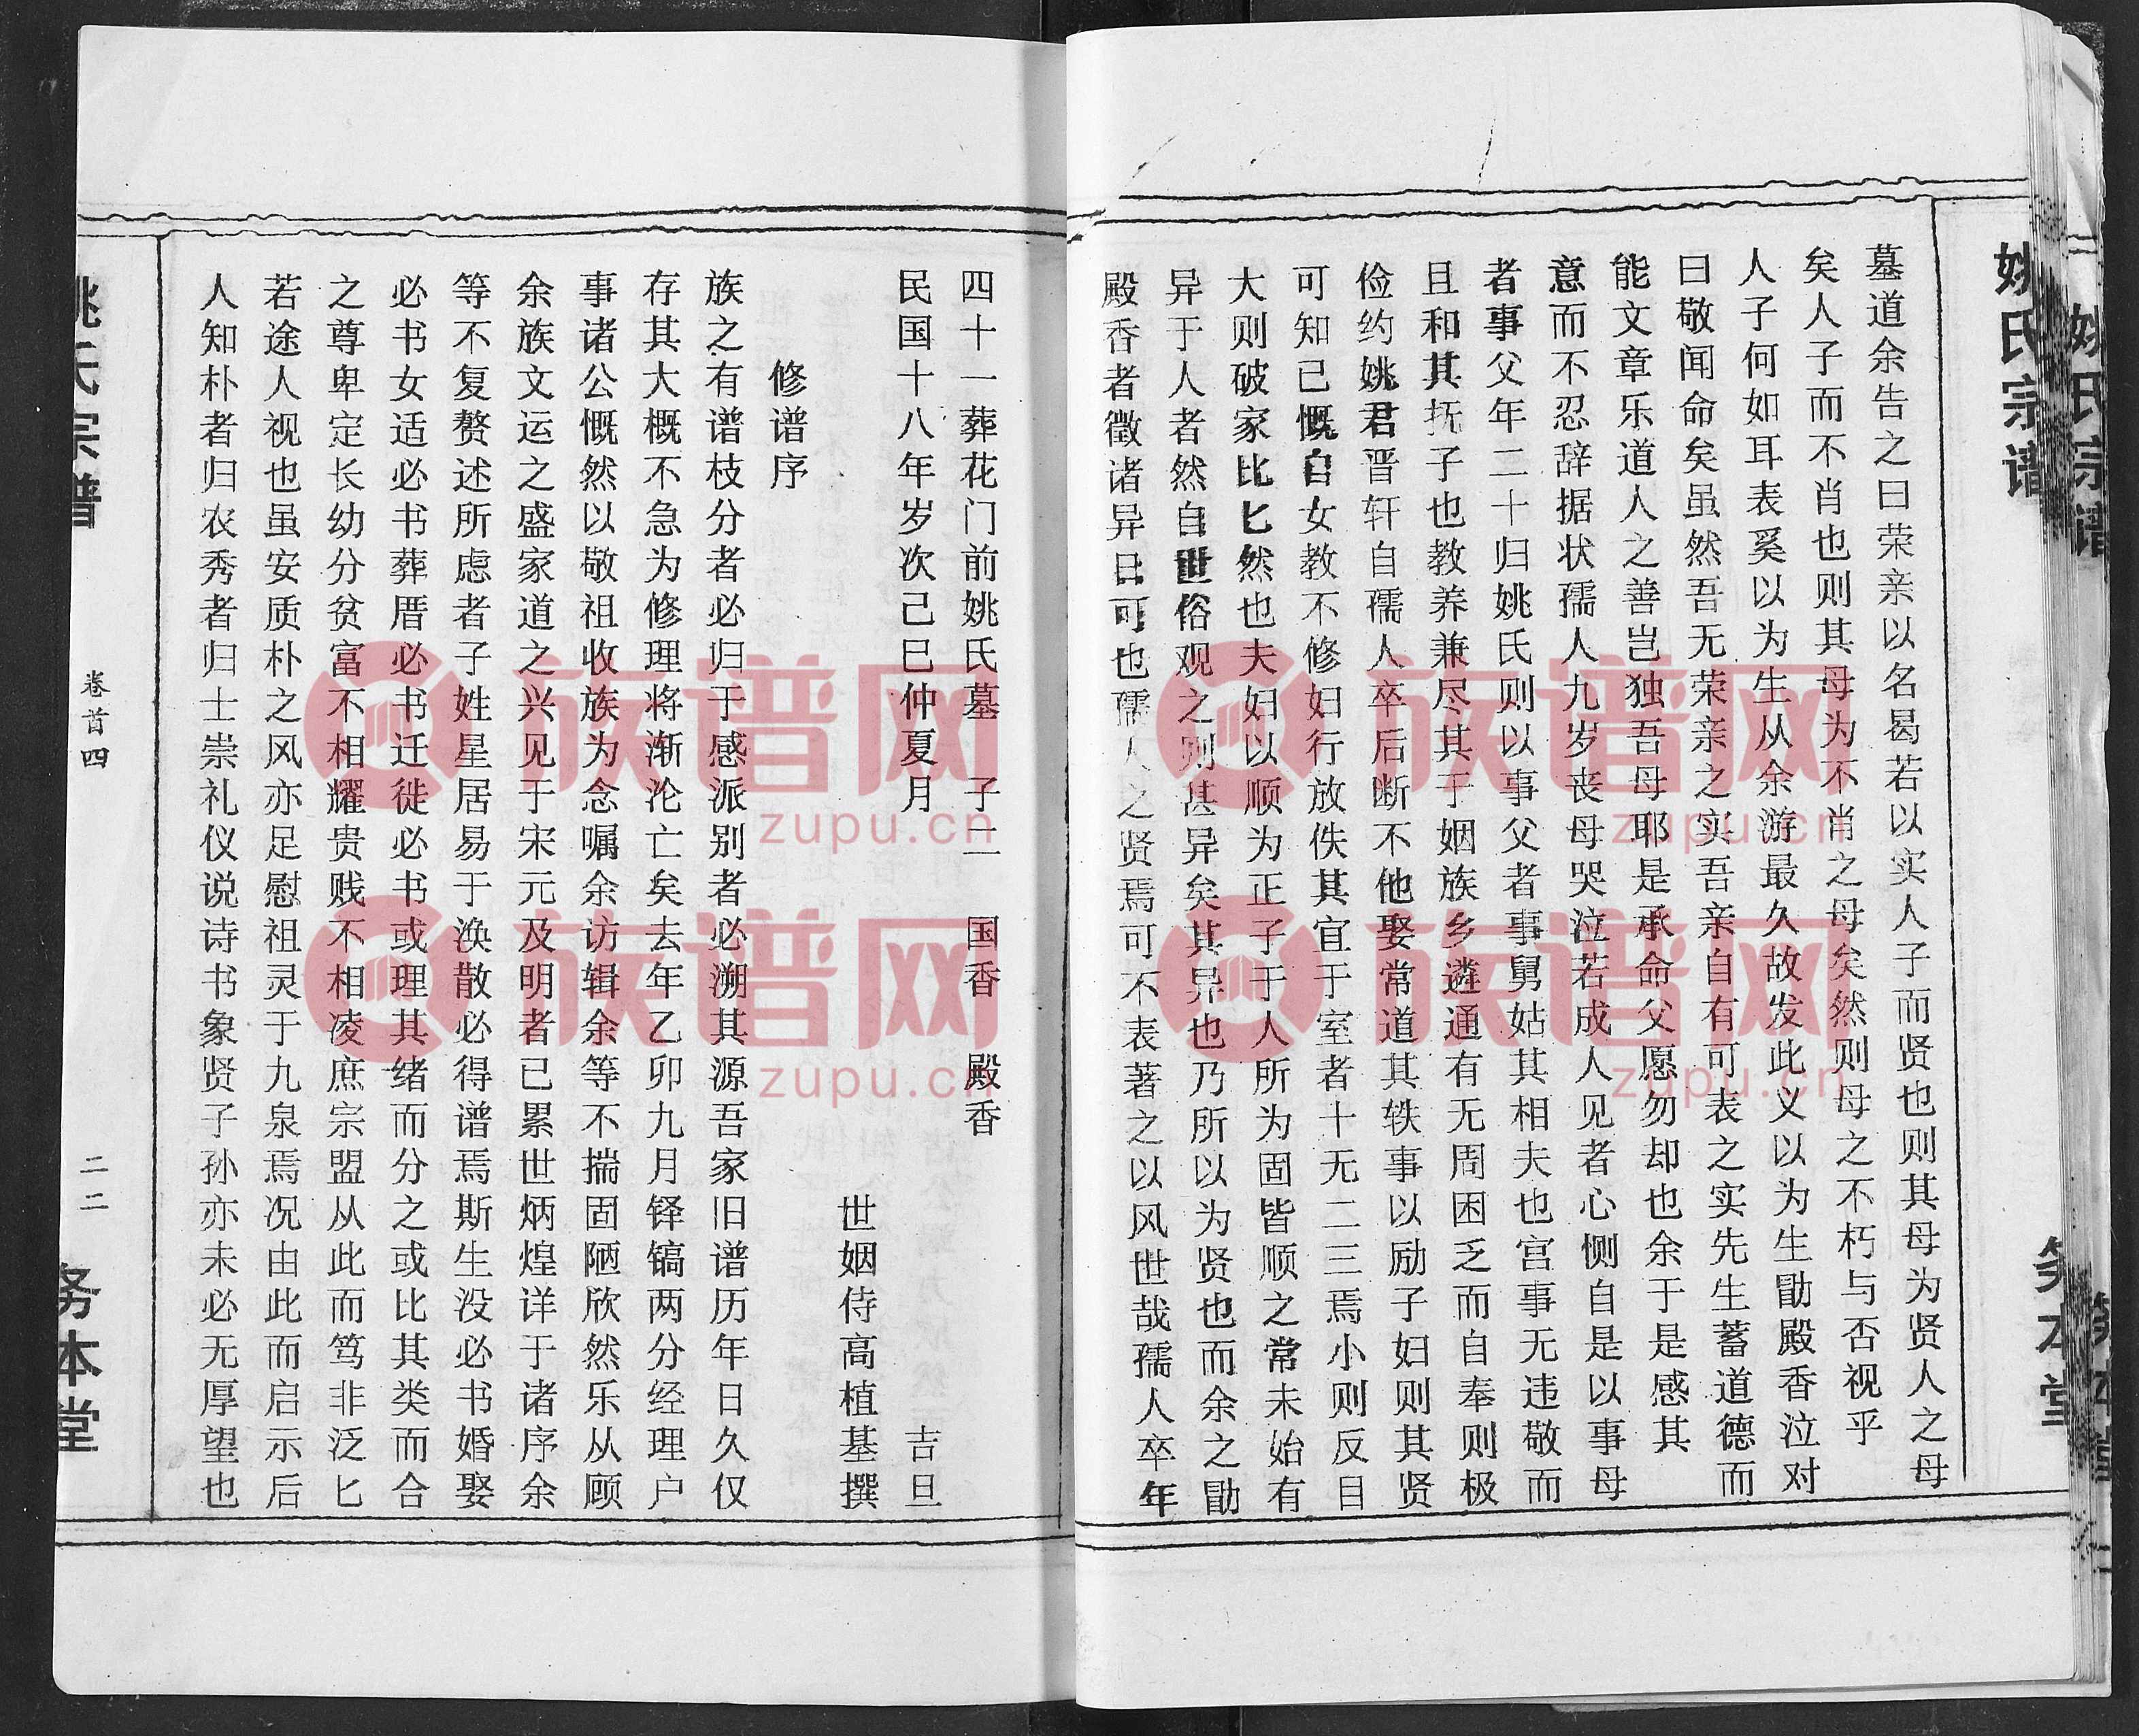 姚氏宗谱
务本堂
墓道余告之曰荣亲以名曷若以实人子而贤也则其母为贤人之母
矣人子而不肖也则其母为不肖之母矣然则母之不朽与否视乎
人子何如耳表奚以为生从余游最久故发此义以为生勖殿香泣对
曰敬闻命矣虽然吾无荣亲之实吾亲自有可表之实先生蓄道德而
能文章乐道人之善岂独吾母耶是承命父愿勿却也余于是感其
意而不忍辞据状孺人九岁丧母哭泣若成人见者心恻自是以事母
者事父年二十归姚氏则以事父者事舅姑其相夫也宫事无违敬而
且和其抚子也教养兼尽其于姻族乡遴通有无周困乏而自奉则极
俭约姚君晋轩自孺人卒后断不他娶常道其轶事以励子妇则其贤
可知已慨自女教不修妇行放佚其宜于室者十无二三焉小则反目
大则破家比比然也夫妇以顺为正子于人所为固皆顺之常未始有
异于人者然自世俗观之则甚异矣其异也乃所以为贤也而余之勖
殿香者徵诸异日可也孺人之贤焉可不表著之以风世哉孺人卒年
四十一葬花门前姚氏墓 子二 国香 殿香
民国十八年岁次己巳仲夏月 吉旦
世姻侍高植基撰
修谱序
族之有谱枝分者必归于感派别者必溯其源吾家旧谱历年日久仅
存其大概不急为修理将渐沦亡矣去年乙卯九月铎镐两分经理户
事诸公慨然以敬祖收族为念嘱余访辑余等不揣固陋欣然乐从顾
余族文运之盛家道之兴见于宋元及明者已累世炳煌详于诸序余
等不复赘述所虑者子姓星居易于涣散必得谱焉斯生没必书婚娶
必书女适必书葬厝必书迁徙必书或理其绪而分之或比其类而合
之尊卑定长幼分贫富不相耀贵贱不相凌庶宗盟从此而笃非泛匕
若途人视也虽安质朴之风亦足慰祖灵于九泉焉况由此而启示后
人知朴者归农秀者归士崇礼仪说诗书象贤子孙亦未必无厚望也
姚氏宗谱
卷首四
二二
务本堂
族谱网
zupu.cn
族谱网
zupu.cn
族谱网
zupu.cn
族谱网
zupu.cn